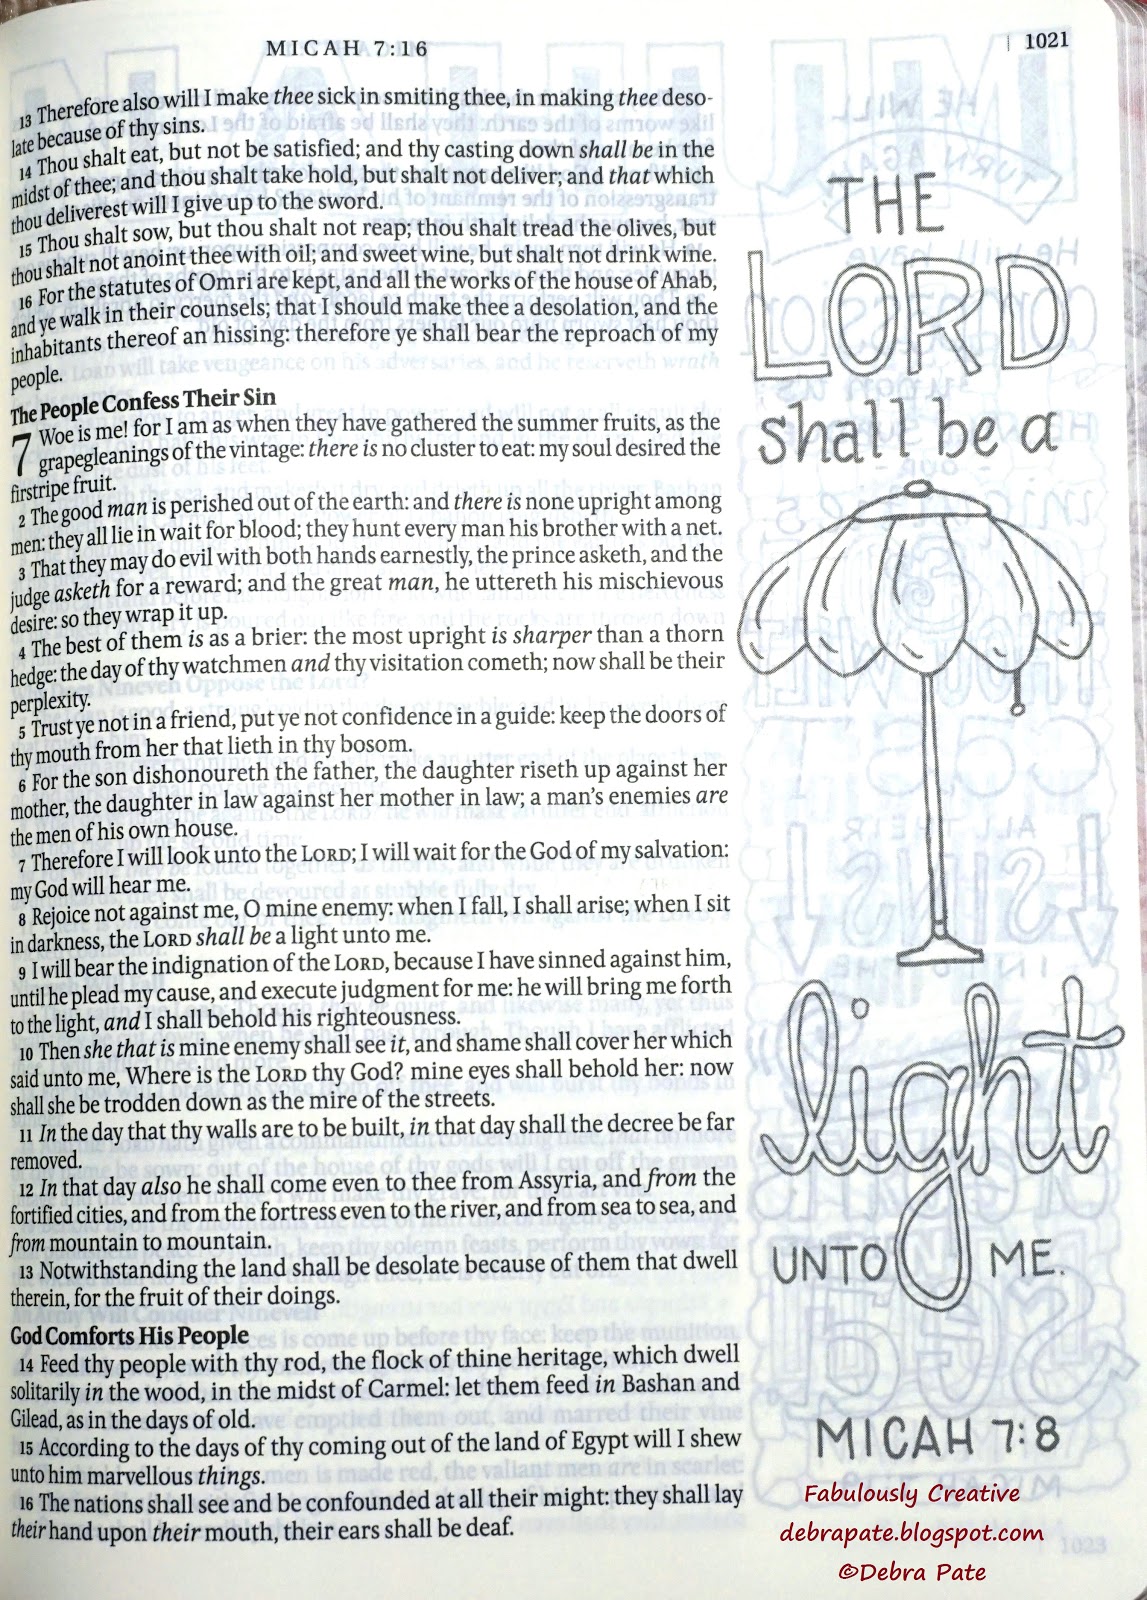 MICAH 7:16
1021
13 Therefore also will I make thee sick in smiting thee, in making thee deso-
late because of thy sins.
14 Thou shalt eat, but not be satisfied; and thy casting down shall be in the
midst of thee; and thou shalt take hold, but shalt not deliver; and that which
thou deliverest will I give up to the sword.
15 Thou shalt sow, but thou shalt not reap; thou shalt tread the olives, but
thou shalt not anoint thee with oil; and sweet wine, but shalt not drink wine.
16 For the statutes of Omri are kept, and all the works of the house of Ahab,
and ye walk in their counsels; that I should make thee a desolation, and the
inhabitants thereof an hissing: therefore ye shall bear the reproach of my
people.
The People Confess Their Sin
7 Woe is me! for I am as when they have gathered the summer fruits, as the
grapegleanings of the vintage: there is no cluster to eat: my soul desired the
firstripe fruit.
2 The good man is perished out of the earth: and there is none upright among
men: they all lie in wait for blood; they hunt every man his brother with a net.
3 That they may do evil with both hands earnestly, the prince asketh, and the
judge asketh for a reward; and the great man, he uttereth his mischievous
desire: so they wrap it up.
4 The best of them is as a brier: the most upright is sharper than a thorn
hedge: the day of thy watchmen and thy visitation cometh; now shall be their
perplexity.
5 Trust ye not in a friend, put ye not confidence in a guide: keep the doors of
thy mouth from her that lieth in thy bosom.
6 For the son dishonoureth the father, the daughter riseth up against her
mother, the daughter in law against her mother in law; a man's enemies are
the men of his own house.
7 Therefore I will look unto the LORD; I will wait for the God of my salvation:
my God will hear me.
8 Rejoice not against me, O mine enemy: when I fall, I shall arise; when I sit
in darkness, the LORD shall be a light unto me.
9 I will bear the indignation of the LORD, because I have sinned against him,
until he plead my cause, and execute judgment for me: he will bring me forth
to the light, and I shall behold his righteousness.
10 Then she that is mine enemy shall see it, and shame shall cover her which
said unto me, Where is the LORD thy God? mine eyes shall behold her: now
shall she be trodden down as the mire of the streets.
11 In the day that thy walls are to be built, in that day shall the decree be far
removed.
12 In that day also he shall come even to thee from Assyria, and from the
fortified cities, and from the fortress even to the river, and from sea to sea, and
from mountain to mountain.
13 Notwithstanding the land shall be desolate because of them that dwell
therein, for the fruit of their doings.
God Comforts His People
14 Feed thy people with thy rod, the flock of thine heritage, which dwell
solitarily in the wood, in the midst of Carmel: let them feed in Bashan and
Gilead, as in the days of old.
15 According to the days of thy coming out of the land of Egypt will I shew
unto him marvellous things.
16 The nations shall see and be confounded at all their might: they shall lay
their hand upon their mouth, their ears shall be deaf.
THE
LORD
shall be a
light
UNTO ME.
MICAH 7:8
Fabulously Creative
debrapate.blogspot.com
©Debra Pate